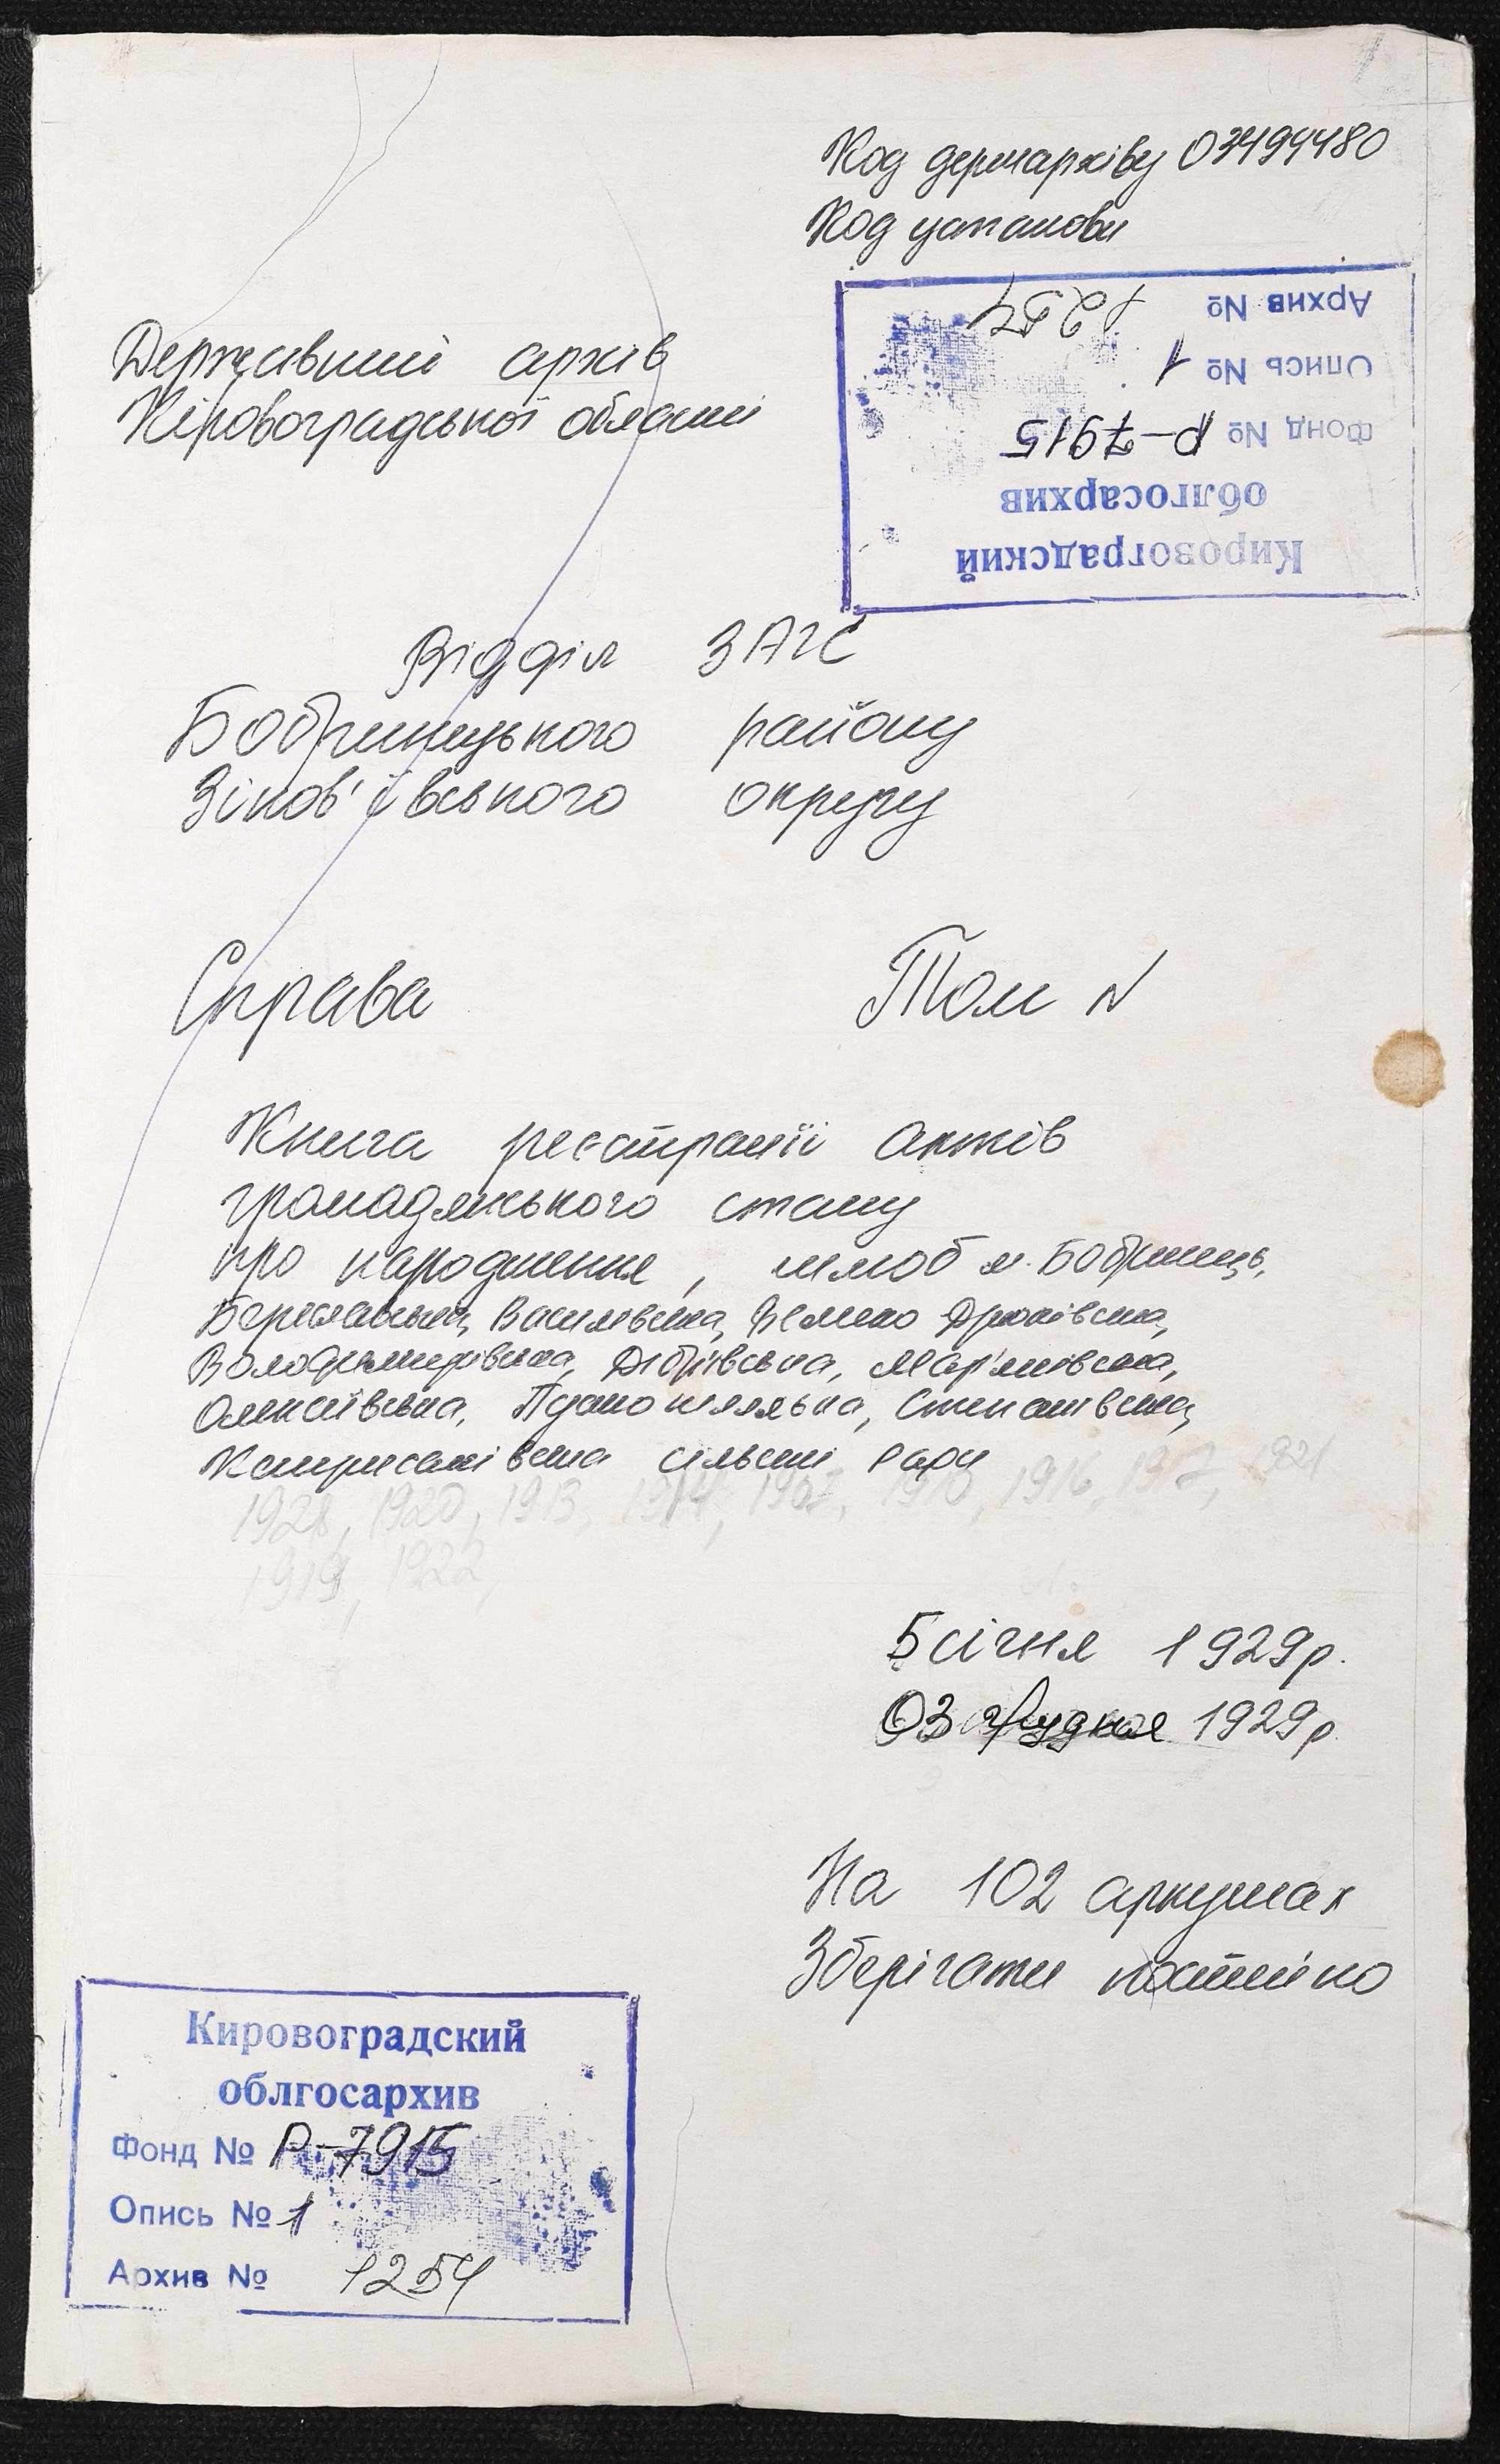 Код держархіву 03494480
Код установи
Архив № 1254
Опись № 1
Фонд № Р-7915
облгосархив
Кировоградский
Державний архів
Кіровоградської області
Відділ ЗАГС
Бобринецького району
Зінов'ївського округу
Справа Том N
Книга реєстрації актів
громадянського стану
про народження, шлюб м. Бобринець,
Бериславська, Василівська, Велико Дрюківська,
Володимирівська, Дібрівська, Мар'янівська,
Олексіївська, Степанівська,
сільські Ради
1928, 1920, 1913, 1907, 1910, 1916, 1917, 1921
1919, 1922,
5 січня 1929р.
03 грудня 1929р.
На 102 аркушах
Зберігати постійно
Кировоградский
облгосархив
Фонд № Р-7915
Опись № 1
Архив № 1254